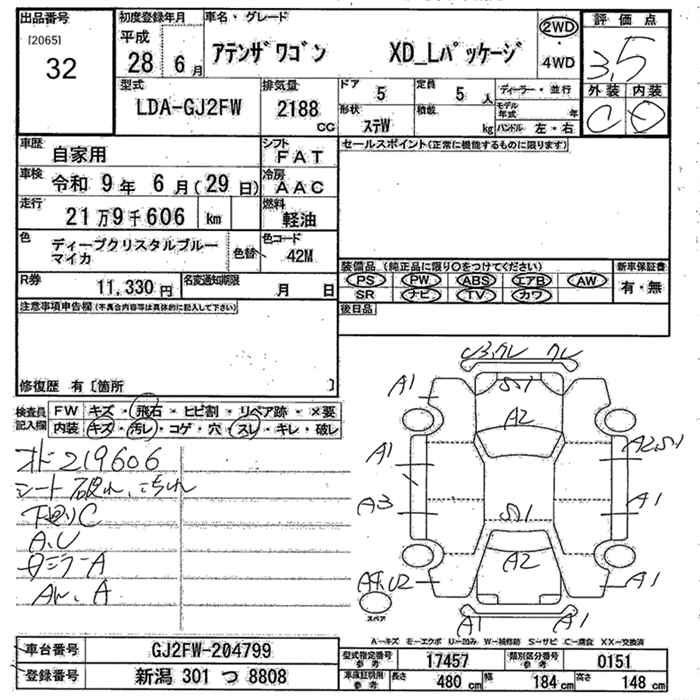 出品番号
[2065]
32
初度登録年月
平成
28 6月
車名・グレード
アテンザワゴン XD_Lパッケージ
2WD
・
4WD
評価点
3.5
外装 内装
C
型式
LDA-GJ2FW
排気量
2188
CC
ドア
5
定員
5 人
形状
ステW
積載
kg
ディーラー・並行
モデル年式 年
ハンドル 左・右
車歴
自家用
シフト
FAT
車検
令和 9年 6月(29日)
冷房
AAC
走行
21万9千606 km
燃料
軽油
色
ディープクリスタルブルーマイカ
色替
色コード
42M
R券
11,330円
名変通知期限
月 日
セールスポイント(正常に機能するものに限ります)
装備品(純正品に限り〇をつけてください)
新車保証書
PS PW ABS エアB AW
SR ナビ TV カワ
有・無
後日品
注意事項申告欄(不具合内容等は具体的に記入して下さい)
修復歴 有〔箇所 〕
検査員記入欄
FW キズ・飛石・ヒビ割・リペア跡・×要
内装 キズ・汚レ・コゲ・穴・スレ・キレ・破レ
219606
シート破れ、こすれ
下廻りC
A,U
A
A
U3,クレ クレ
A1
SS1
A2
A1
A2,S1
A3
A1
SS1
A2
U2
A1
A1
A1
スペア
A-キズ E-エクボ U-凹み W-補修跡 S-サビ C-腐食 XX-交換済
車台番号
GJ2FW-204799
登録番号
新潟 301 つ 8808
型式指定番号
参考
17457
類別区分番号
参考
0151
車庫証明用
参考
長さ 480 cm
幅 184 cm
高さ 148 cm